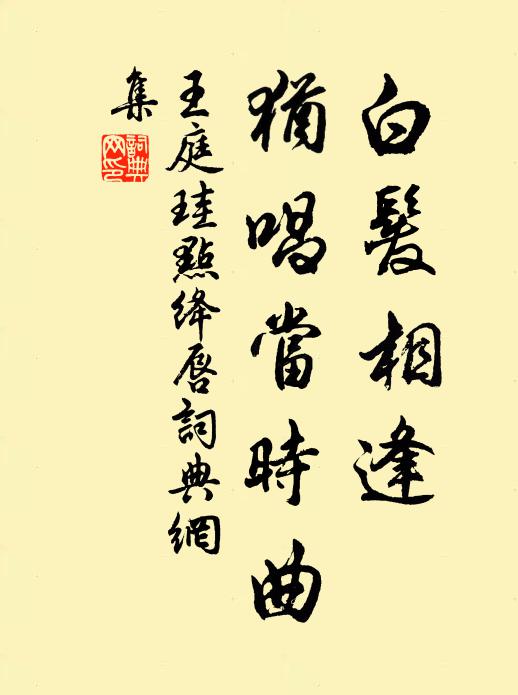 白髮相逢
猶唱當時曲
王庭珪點絳唇詞典網
集
詞典
网印